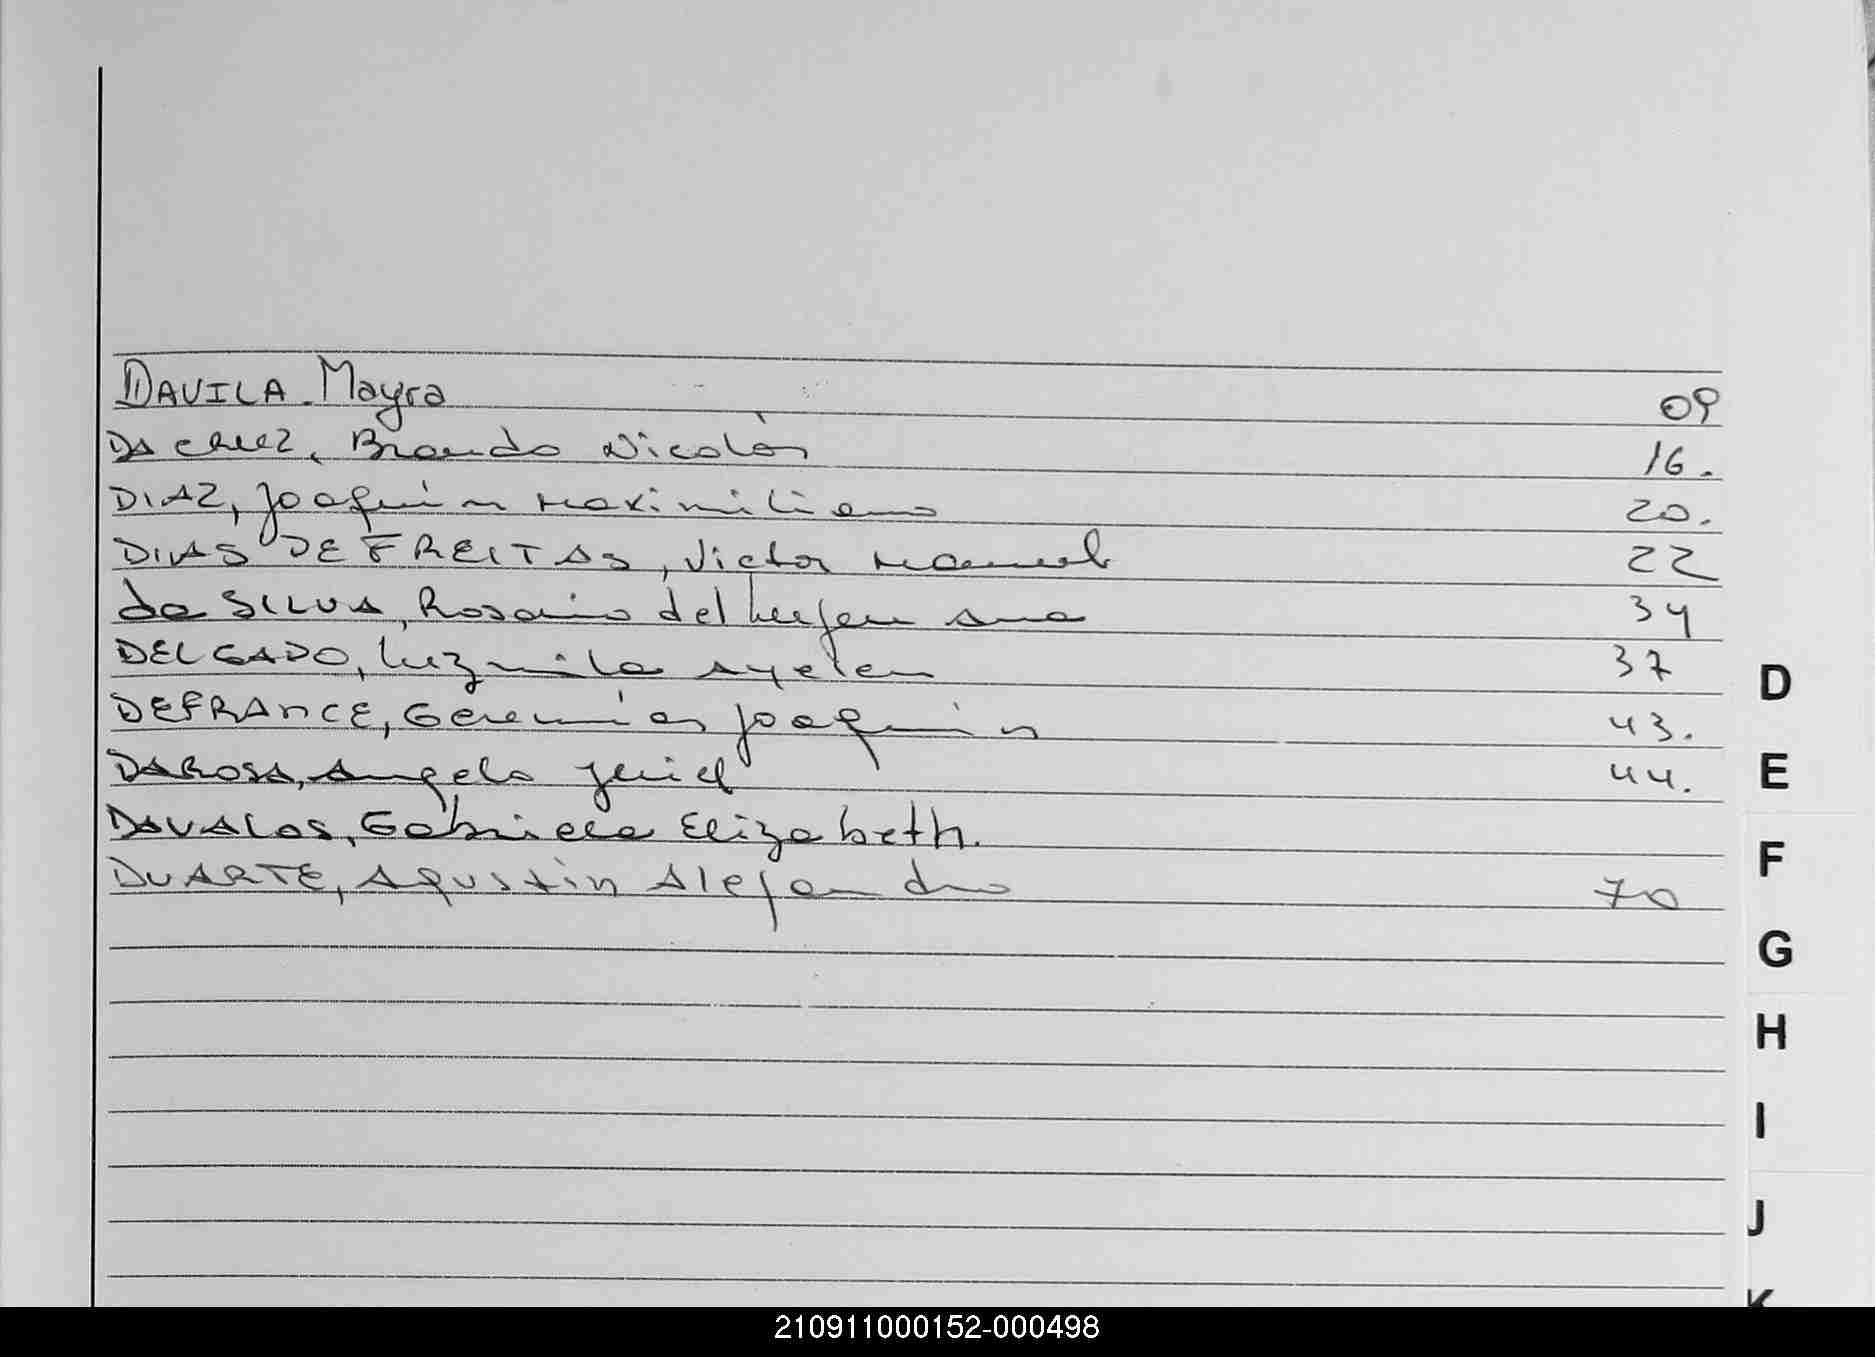 DAVILA. Mayra 09
DA CRUZ, Brando Nicolás 16.
DIAZ, Joaquin Maximiliano 20.
DIAS DE FREITAS, Victor Manuel 22
da SILVA, Rosario del Luján Ana 34
DELGADO, Luzmila Ayelen 37
DEFRANCE, Geremías Joaquin 43.
DAROSA, Angelo 44.
DAVALOS, Gabriela Elizabeth.
DUARTE, Agustin Alejandro 70
D
E
F
G
H
I
J
K
210911000152-000498